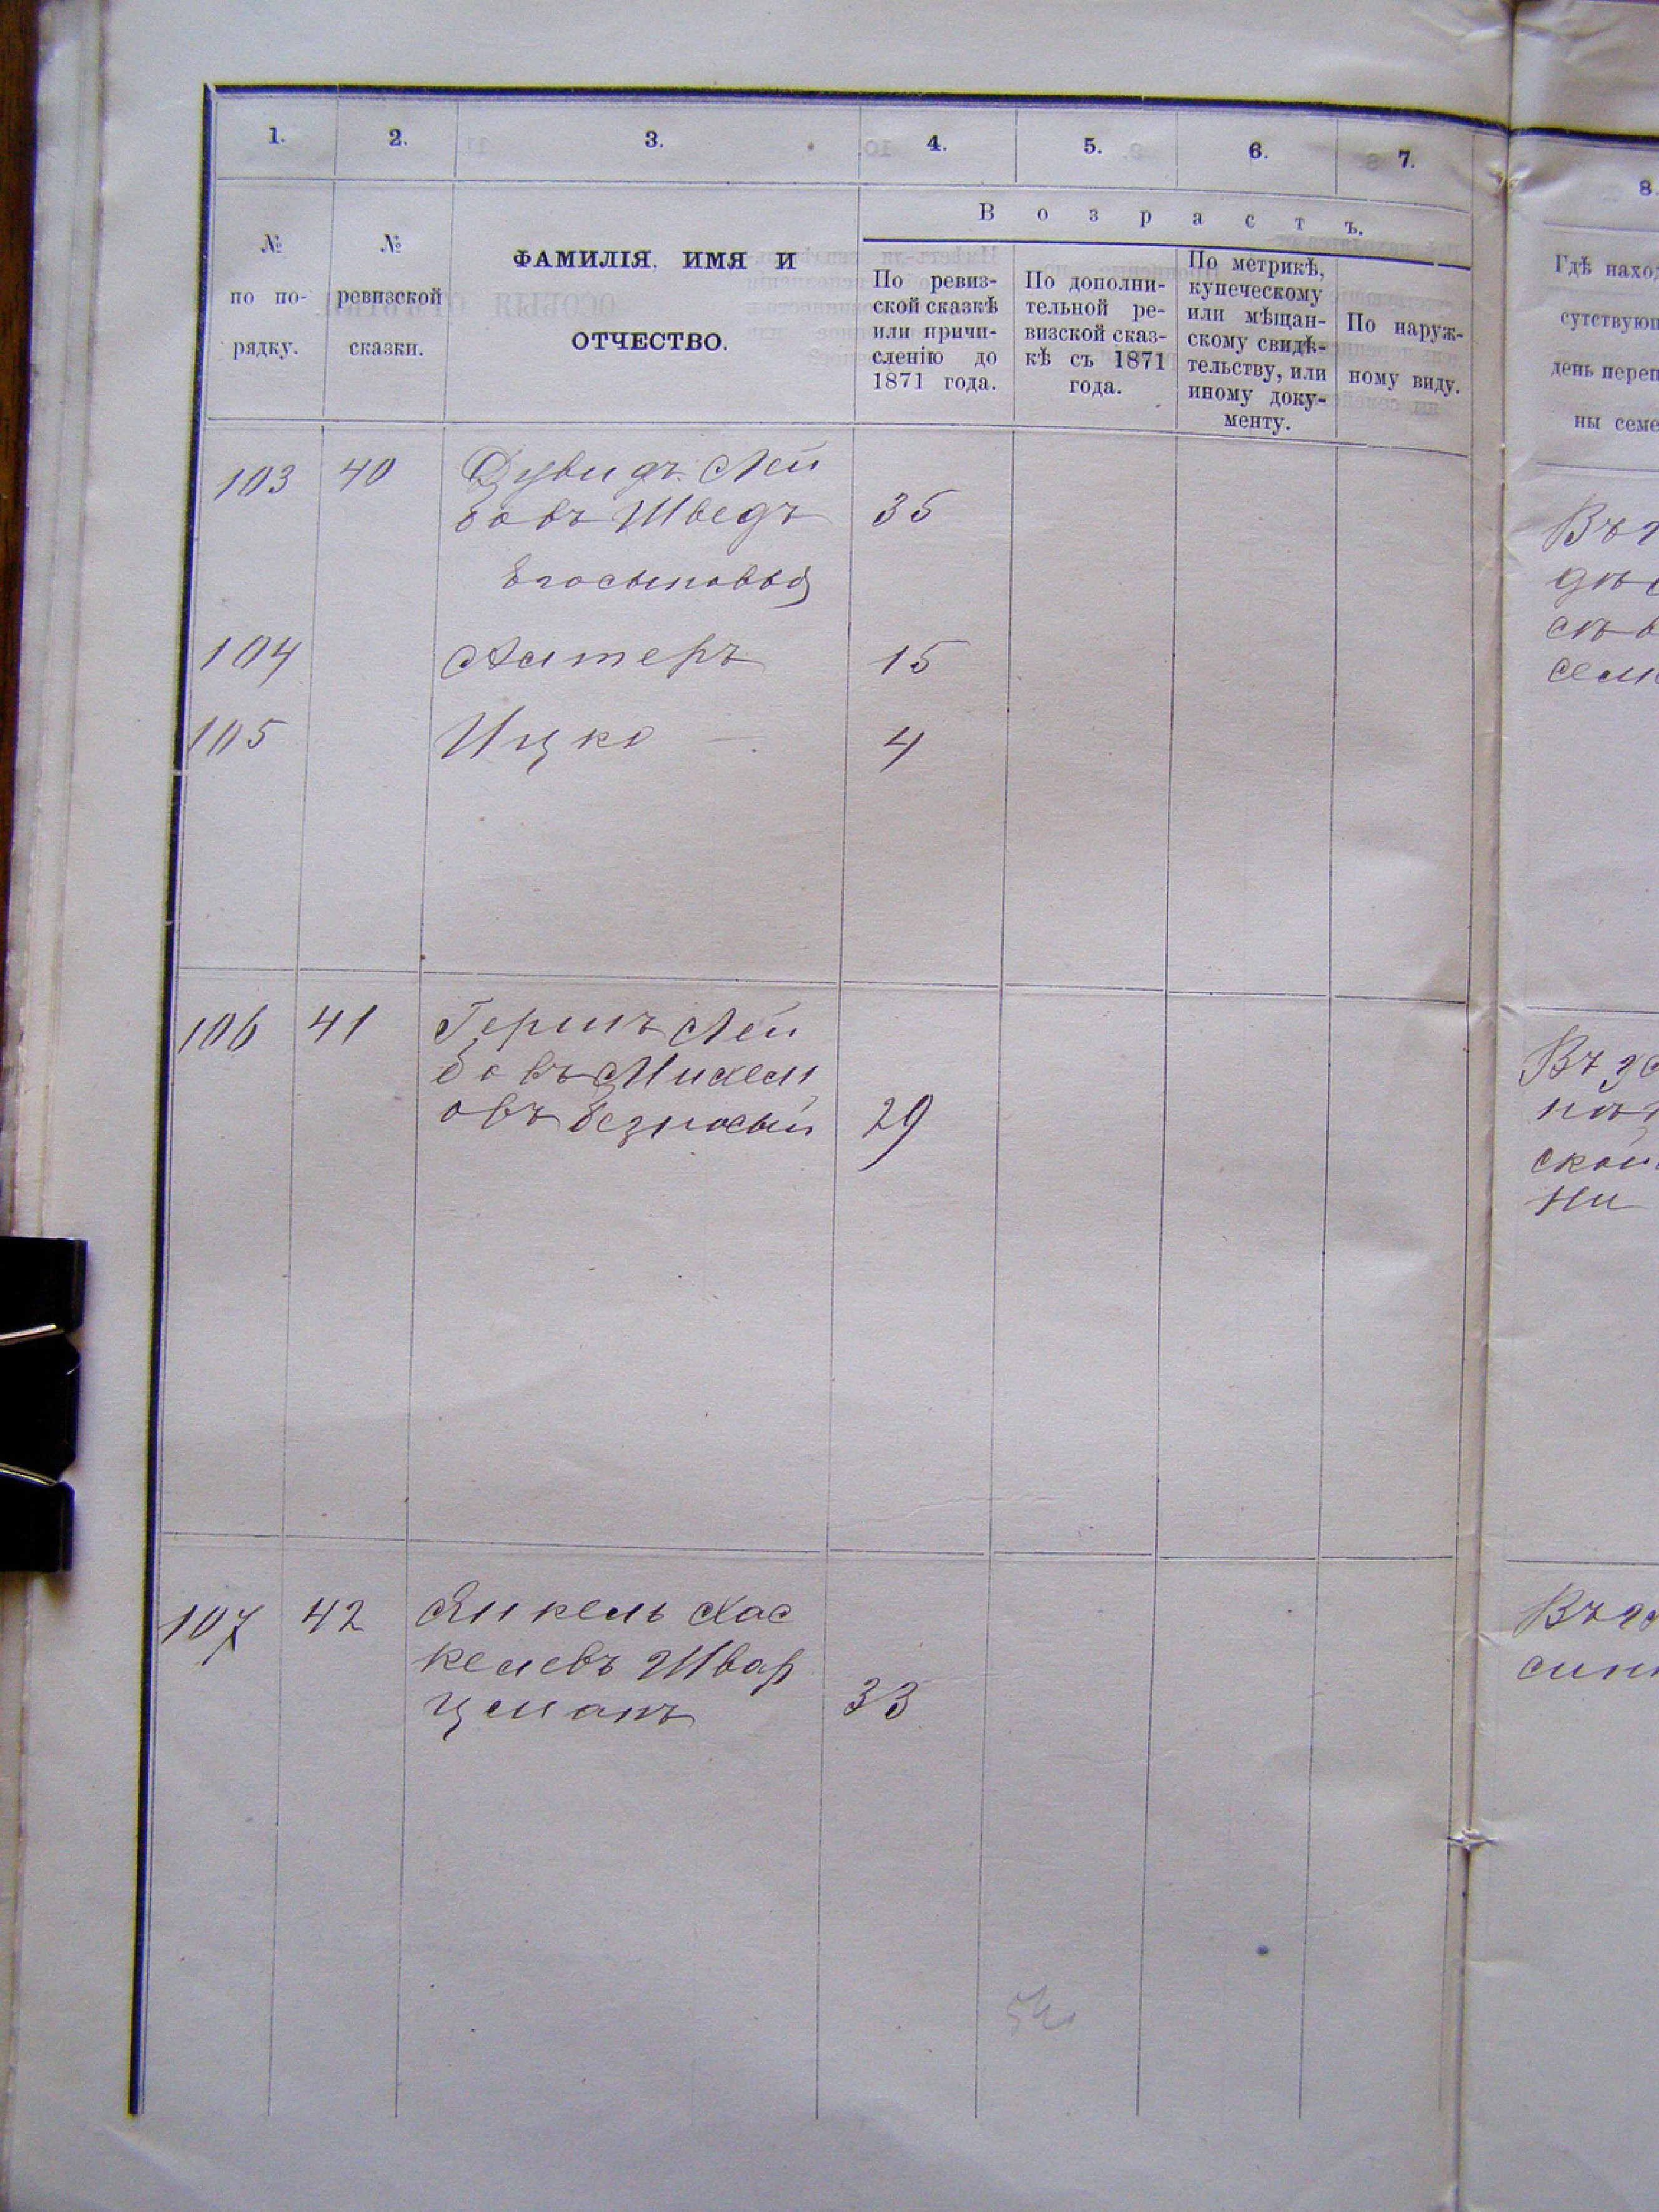 1. 2. 3. 4. 5. 6. 7.
8.
В о з р а с т ъ.
№
по по-
рядку.
№
ревизской
сказки.
ФАМИЛІЯ, ИМЯ И
ОТЧЕСТВО.
По ревиз-
ской сказкѣ
или причи-
сленію до
1871 года.
По дополни-
тельной ре-
визской сказ-
кѣ съ 1871
года.
По метрикѣ,
купеческому
или мѣщан-
скому свидѣ-
тельству, или
иному доку-
менту.
По наруж-
ному виду.
Гдѣ наход
сутствующ
день переп
ны семе
103 40 Дувидъ Лей
бовъ Шведъ 35
Его сыновья
104 Алтеръ 15
105 Ицко — 4
106 41 Гершъ Лей
бовъ Михел
овъ Безносый 29
107 42 Янкель Хас
келевъ Швар
цманъ 33
Въ
семе
Въ
ской
ни
Въ